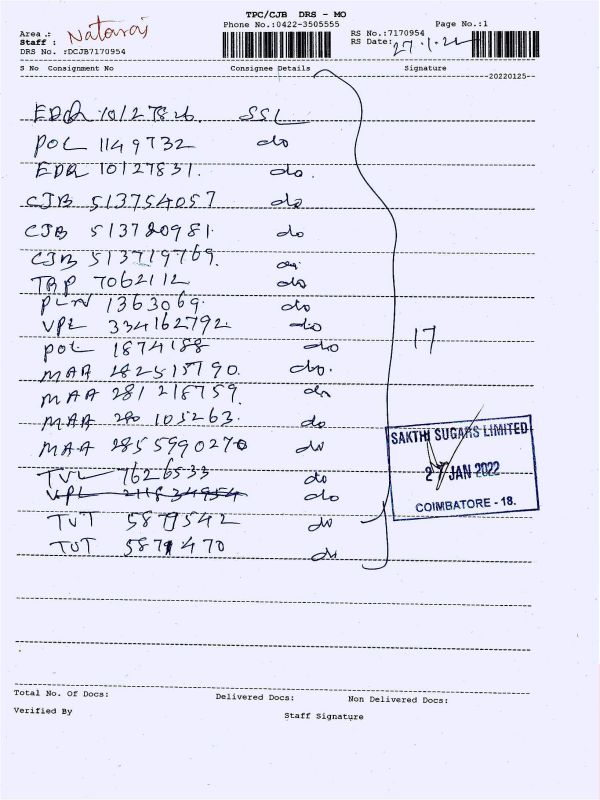 TPC/CJB DRS - MO
Phone No.:0422-3505555
Page No.:1
Area : Nataraj
Staff :
DRS No. :DCJB7170954
RS No.:7170954
RS Date: 27.1.22
S No Consignment No Consignee Details Signature
--20220125--
EDR 10127826. SSL
POL 1149732 do
EDR 10127831. do.
CJB 513754057 do
CJB 513720981. do
CJB 513719769. do
TRP 7062112 do
PLN 1363069. do
VPL 334162792 do
POL 1874188 do
17
MAA 282515790. do.
MAA 281218759. do
MAA 280105263. do
MAA 2855990270 do
TVL 7626533 do
VPL do
TUT 5879542 do
TUT 5871470 do
SAKTHI SUGARS LIMITED
27 JAN 2022
COIMBATORE - 18.
Total No. Of Docs: Delivered Docs: Non Delivered Docs:
Verified By Staff Signature